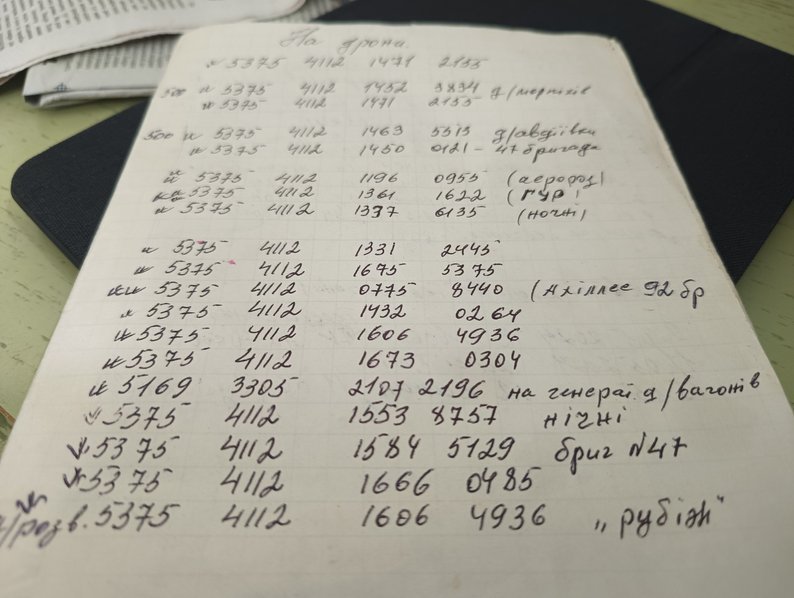 На дрони
5375 4112 1471 2155
500 5375 4112 1452 3834 д/морпіхів
5375 4112 1471 2155
500 5375 4112 1463 5513 д/авдіївки
5375 4112 1450 0121 - 47 бригада
5375 4112 1196 0955 (аерофоз)
5375 4112 1361 1622 (ГУР)
5375 4112 1337 6135 (ночні)
5375 4112 1331 2445
5375 4112 1675 5375
5375 4112 0775 8440 (Ахіллес 92 бр
5375 4112 1432 0264
5375 4112 1606 4936
5375 4112 1673 0304
5169 3305 2107 2196 на генерат д/вагонів
5375 4112 1553 8757 нічні
5375 4112 1584 5129 бриг N47
5375 4112 1666 0485
/розв. 5375 4112 1606 4936 „рубіж"